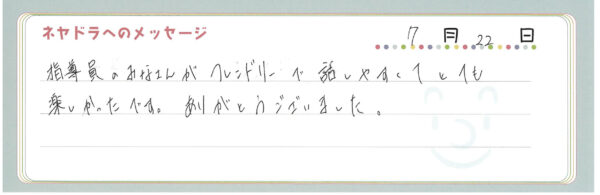 ネヤドラへのメッセージ
7月22日
指導員のみなさんがフレンドリーで話しやすくてとても
楽しかったです。ありがとうございました。